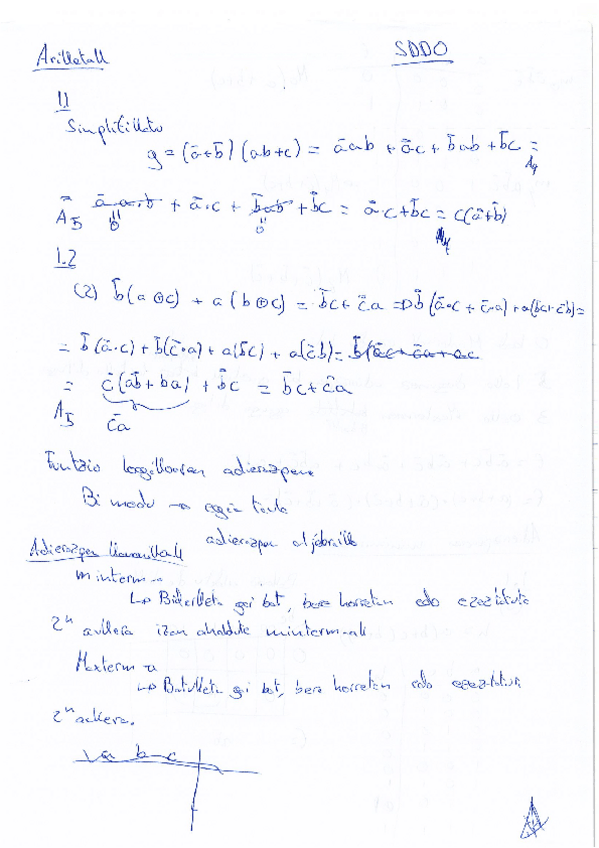 Ariketak SDDO
1.1
Simplifikatu
g = (ā+b̄)(ab+c) = āab + āc + b̄ab + b̄c =
A4
= ā·a·b + ā·c + b̄ab + b̄c = ā·c + b̄c = c(ā+b̄)
A5 0 0 A4
1.2
(2) b̄(a⊕c) + a(b⊕c) = b̄c + c̄a => b̄(ā·c + c̄·a) + a(b̄c + c̄b) =
= b̄(ā·c) + b̄(c̄·a) + a(b̄c) + a(c̄b) =
= c̄(ab̄ + ba) + b̄c = b̄c + c̄a
A5 c̄a
Funtzio logikoaren adierazpena
Bi modu → egia taula
adierazpen aljebraiko
Adierazpen kanonikoak
minterm-a
↳ Biderketa gai bat, bere horretan edo ezeztatuta
2ⁿ aukera izan ahal dute minterm-ak
Maxterm-a
↳ Batuketa gai bat, bere horretan edo ezeztatuta
2ⁿ aukera.
a b c